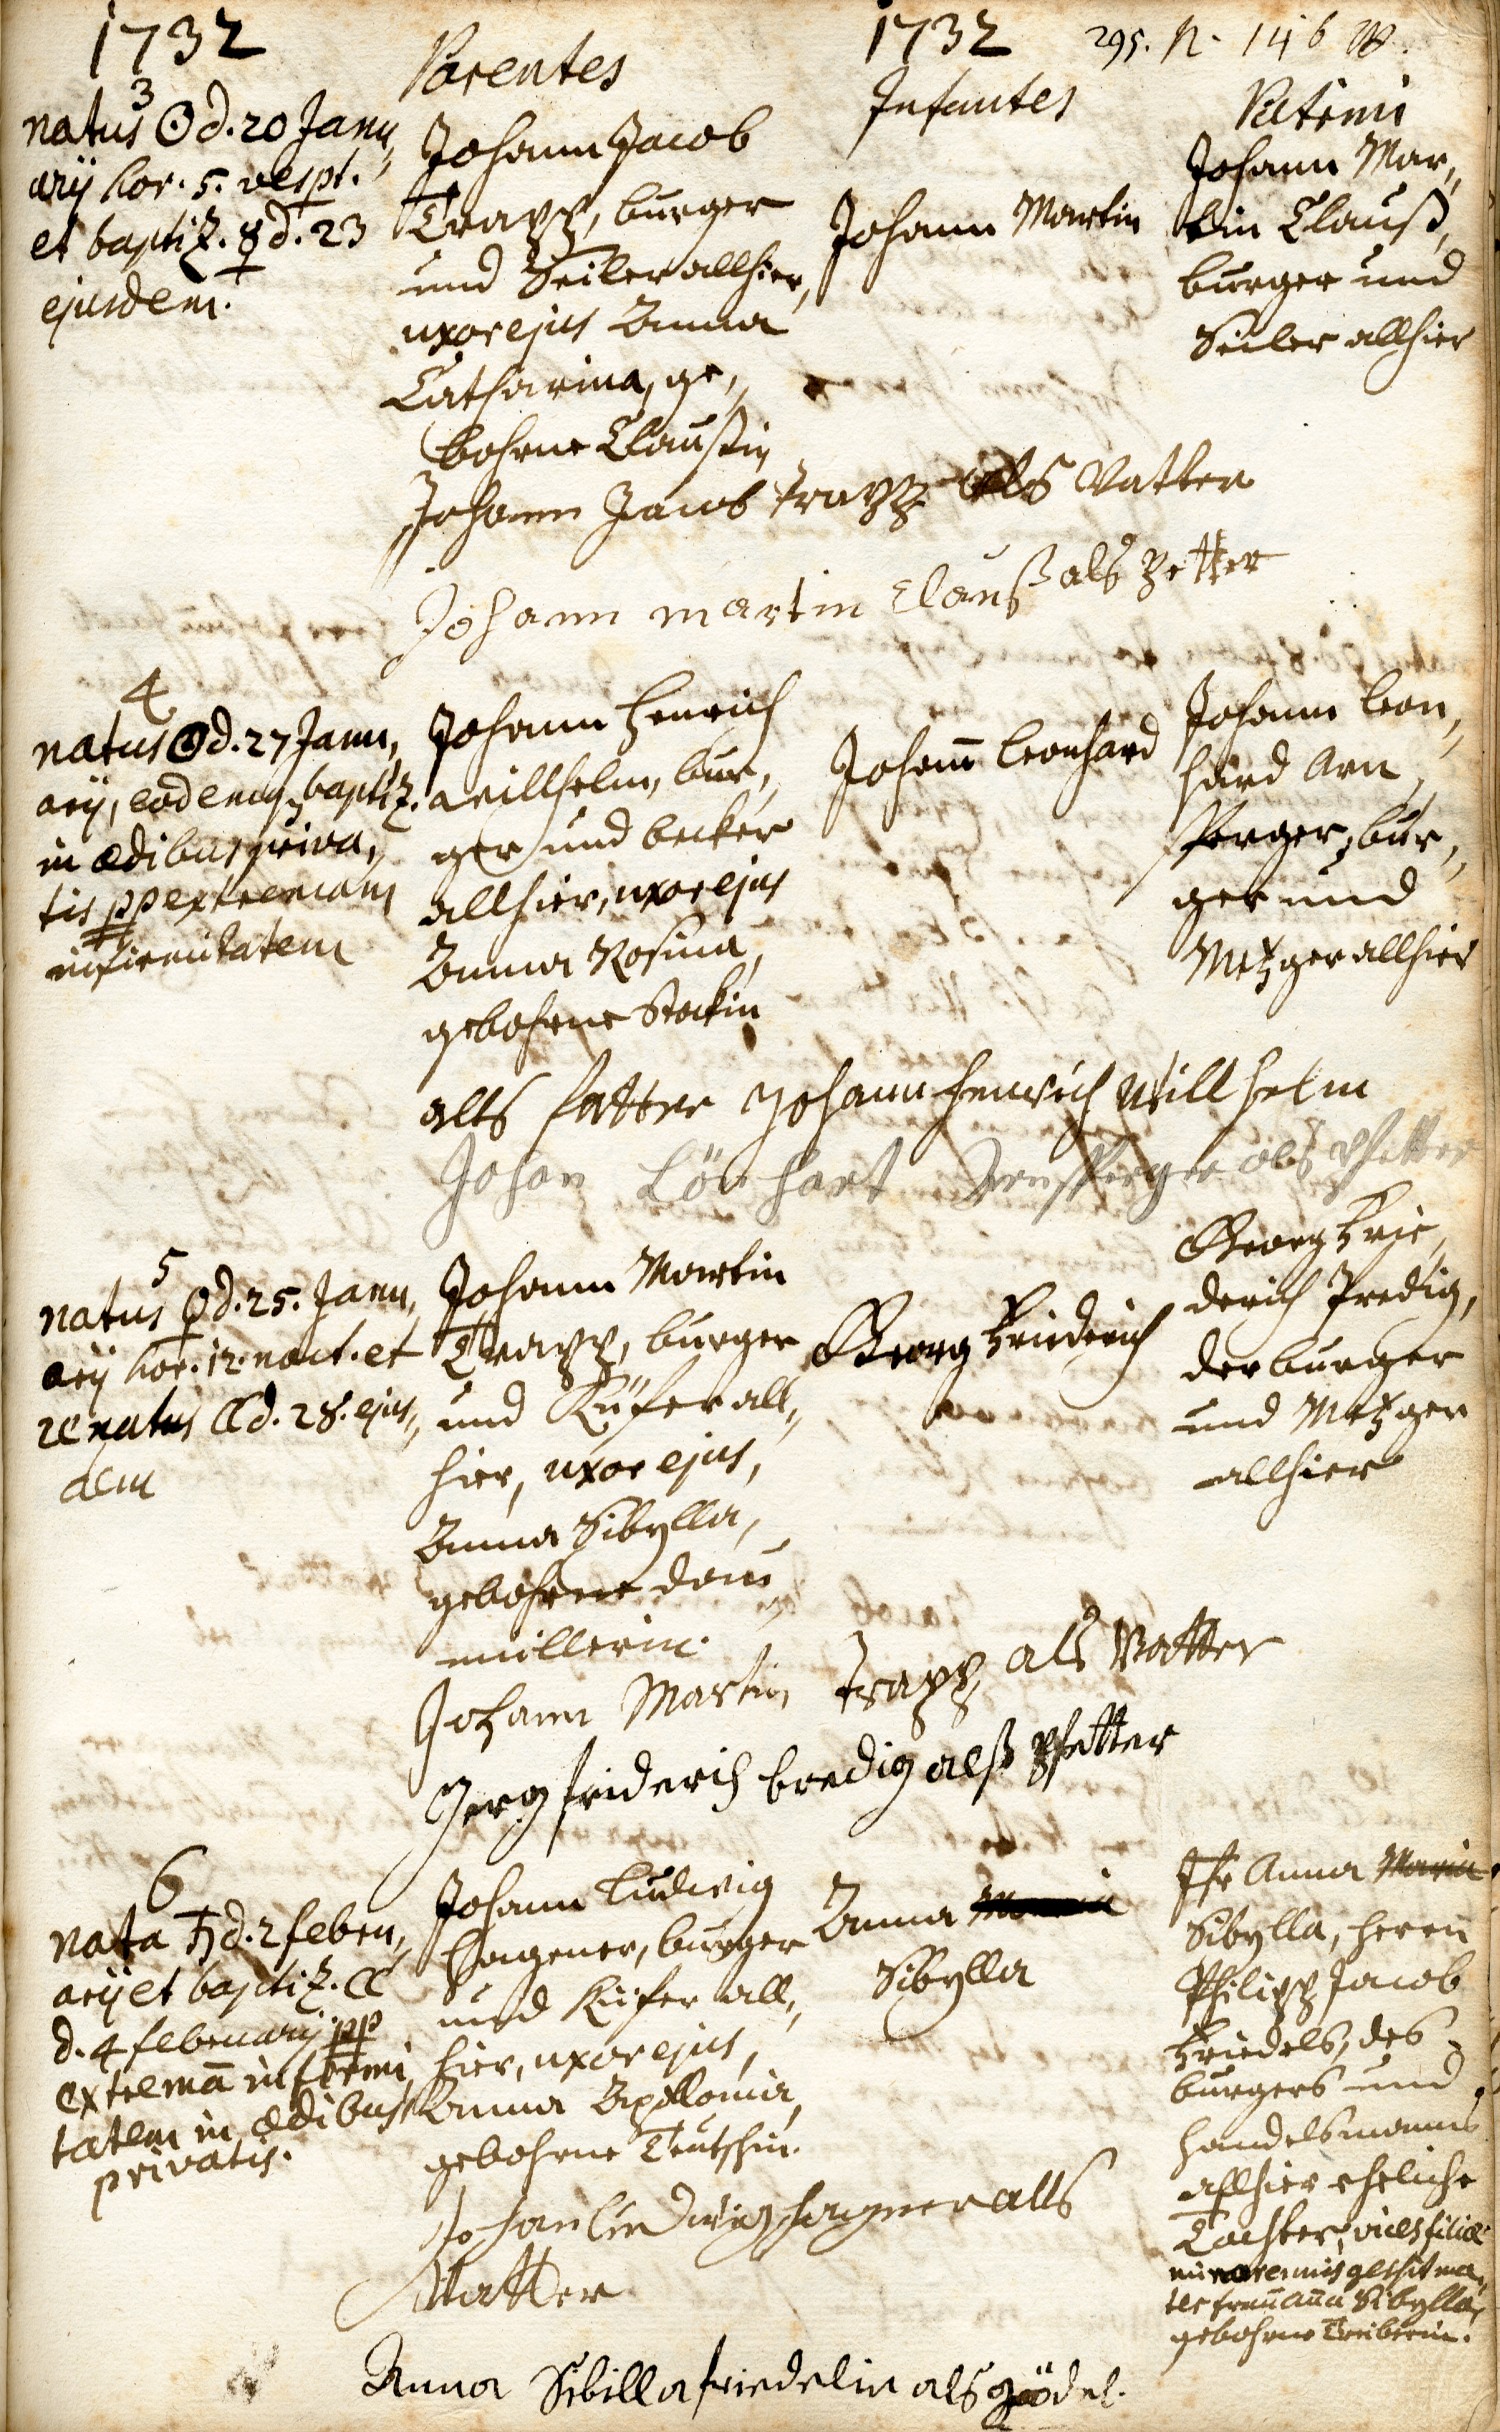 1732
Parentes
1732
295. N. 146
Infantes
Patrini
3
natus ☉ d. 20 Janu,
arÿ hor. 5. vespt.
et baptiz. ☿ d. 23
ejusdem.
Johann Jacob
Trapp, burger
und Seiler allhier,
uxor ejus Anna
Catharina, ge,,
bohrne Claußin
Johann Martin
Johann Mar,,
tin Clauß,
burger und
Seiler allhier
Johann Jacob Trapp als Vatter
Johann Martin Clauß als Petter
4
natus ☉ d. 27 Janu,
arÿ, eodemq baptiz.
in ædibus priva,
tis pp extremam
infirmitatem
Johann Henrich
Willhelm, bur,,
ger und becker
allhier, uxor ejus
Anna Rosina,
gebohrne Stockin
Johann Leonhard
Johann Leon,,
hard Arn,
sperger, bur,,
ger und
Metzger allhier
alls fatter Johann Henrich Willhelm
Johan Lönhart Arnsperger als Pfetter
5
natus ♀ d. 25. Janu,
arÿ hor. 12. noct. et
renatus ☾ d. 28. ejus,,
dem
Johann Martin
Trapp, burger
und Küfer all,,
hier, uxor ejus,
Anna Sibylla,
gebohrne Dom
müllerin.
Georg Friederich
Georg Frie,
derich Predig,
der burger
und Metzger
allhier
Johann Martin Trapp als Vatter
Jerg friderich bredig alß Pfetter
6
nata ♄ d. 2 febru,
arÿ et baptiz. ☾
d. 4 februarÿ pp
extremā infirmi
tatem in ædibus
privatis.
Johann Ludwig
Hagener, burger
und Küfer all,,
hier, uxor ejus,
Anna Apollonia,
gebohrne Teutschin.
Anna Maria
Sibylla
Jfr Anna Maria
Sibylla, Herrn
Philipp Jacob
Friedels, des
burgers und
Handelsmanns
allhier eheliche
Tochter, vices filiæ
minorennis gessit ma,
ter frau Aña Sibylla,
gebohrne
Johan Ludwig Hagner alls
Vatter
Anna Sibilla friedelin als gödel.